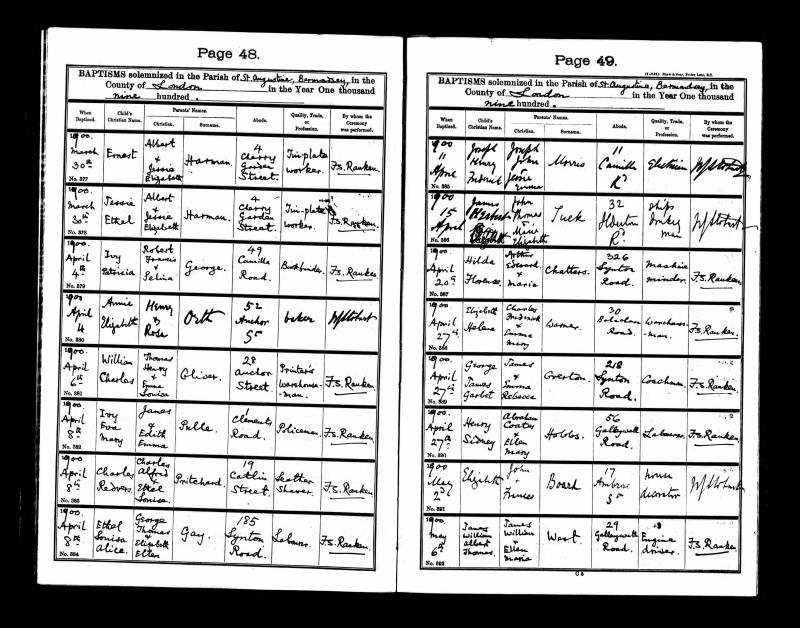 Page 48.
BAPTISMS solemnized in the Parish of St. Augustine, Bermondsey, in the
County of London in the Year One thousand
nine hundred.
When Baptized. Child's Christian Name. Parents' Names. Christian. Surname. Abode. Quality, Trade, or Profession. By whom the Ceremony was performed.
1900. March 30th No. 377 Ernest Albert & Jessie Elizabeth Harman. 4 Cherry Garden Street. Tin-plate worker. F.S. Ranken.
1900. March 30th No. 378 Jessie Ethel Albert & Jessie Elizabeth Harman. 4 Cherry Garden Street. Tin-plate worker. F.S. Ranken.
1900. April 4th No. 379 Ivy Patricia Robert Francis & Selina George. 49 Camilla Road. F.S. Ranken
1900 April 4 No. 380 Annie Elizabeth Henry & Rose Orth 52 Anchor St baker
1900. April 6th No. 381 William Charles Thomas Henry & Emma Louisa Oliver. 28 Anchor Street Printer's warehouse-man. F.S. Ranken.
1900. April 8th No. 382 Ivy Eva Mary James & Edith Emma Clements Road. Policeman. F.S. Ranken.
1900. April 8th No. 383 Charles Redvers Charles Alfred & Ethel Louisa. Pritchard. 19 Catlin Street. Leather Shaver. F.S. Ranken.
1900. April 8th No. 384 Ethel Louisa Alice. George Thomas & Elizabeth Ellen Gay. 185 Lynton Road. Labourer. F.S. Ranken.
Page 49.
BAPTISMS solemnized in the Parish of St. Augustine, Bermondsey, in the
County of London in the Year One thousand
nine hundred.
When Baptized. Child's Christian Name. Parents' Names. Christian. Surname. Abode. Quality, Trade, or Profession. By whom the Ceremony was performed.
1900 11 April No. 385 Joseph Henry Frederick Joseph John & Jessie Emma Morris 11 Camilla Rd Electrician
1900 15 April No. 386 James John Thomas & Elizabeth Tuck 32 Rd ships man
1900. April 20th No. 387 Hilda Florence Arthur Edward & Maria Chatters. 326 Lynton Road. Machine minder. F.S. Ranken.
1900. April 27th No. 388 Elizabeth Helena Charles Frederick & Emma Mary Warner. 30 Balaclava Road. Warehouse-man. F.S. Ranken.
1900. April 27th No. 389 George James Garbet James & Emma Rebecca Overton. 218 Lynton Road. Coachman. F.S. Ranken.
1900. April 27th No. 390 Henry Sidney Abraham Coates & Ellen Mary Hobbs. 56 Galleywall Road. Labourer. F.S. Ranken.
1900 May 2d No. 391 Elizabeth John & Frances Board 17 Ambrose St house decorator
1900. May 6th No. 392 James William Albert Thomas. James William & Ellen Maria West. 29 Galleywall Road. Engine driver. F.S. Ranken.
C 2